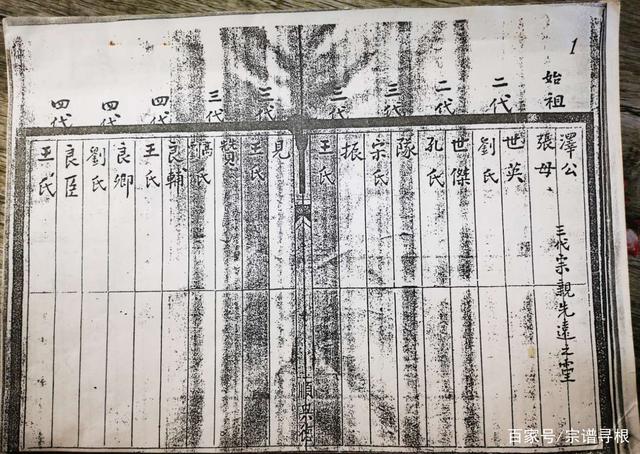 1
始祖
二代
二代
三代
三代
三代
三代
四代
四代
四代
澤公
張母
世英
劉氏
世傑
孔氏
隊
宗氏
振
王氏
見
王氏
賛
氏
良輔
王氏
良卿
劉氏
良臣
王氏
三代宗親先遠之堂
百家号/宗谱寻根